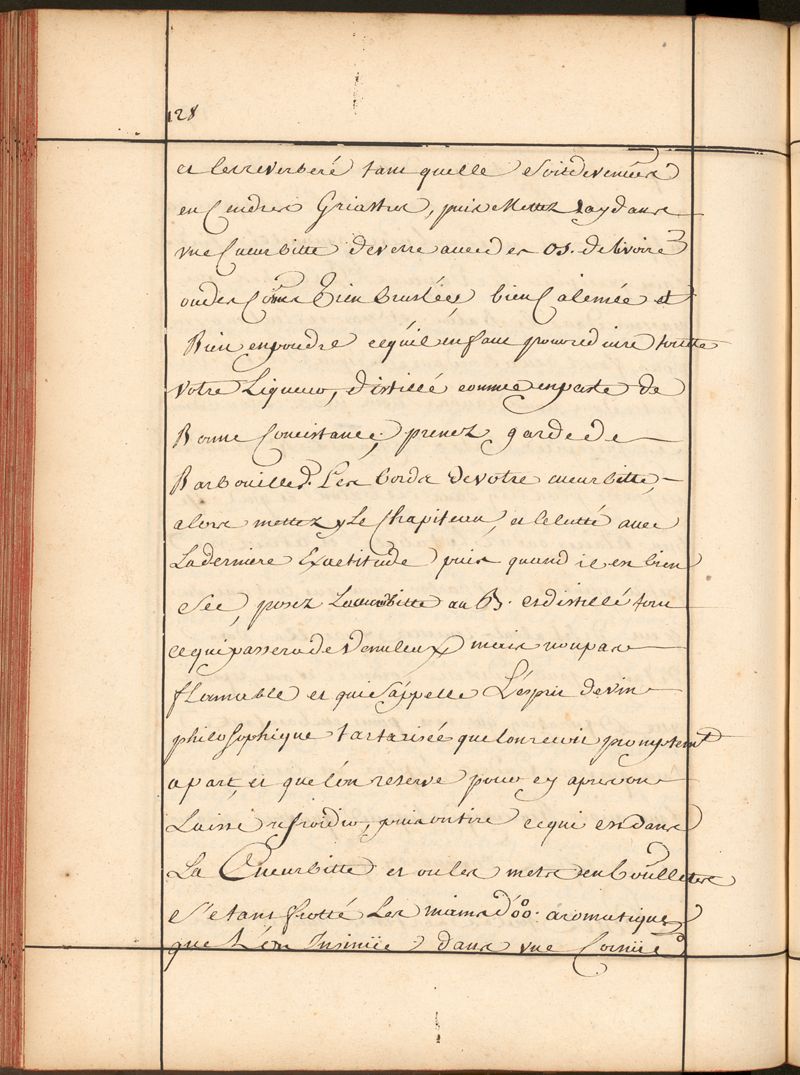 128
et les reverberé tant quelle soit devenües
en Cendres Griastres, puis Mettez Lay dans
vne Cueurbitte de verre avec des os. de livoire
ou des Cornes Bien bruslées bien Calcinée et
Bien en poudre ce qu'il en faut pour reduire toutte
votre Liqueur, distillé comme en paste de
Bonne Concistance, prenez garde de
Barbouiller Les bords de votre cueurbitte,
alors mettez y Le Chapiteau, et le lutté avec
La derniere Exactitude puis quand il est bien
sec, posez La cueurbitte au B. et distillé tout
ce qui passera de Venuleux mais non pas
flamable et qui s'appelle L'esprit de vin
philosophique tartarisée que lon recoit promptem.t
apart, et que l'on reserve pour cy apres on
Laisse refroidir, puis on tire ce qui est dans
La Cueurbitte et on les mets en boullettes
s'etant frotté Les mains d'oo. aromatique
que L'on Insinüe dans vne Cornüe